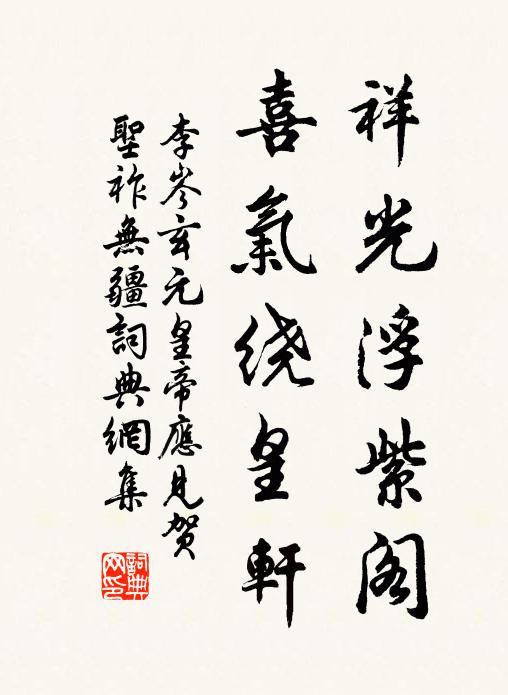 祥光浮紫阁
喜氣绕皇軒
李岑玄元皇帝應見賀
聖祚無疆詞典網集
詞典网印